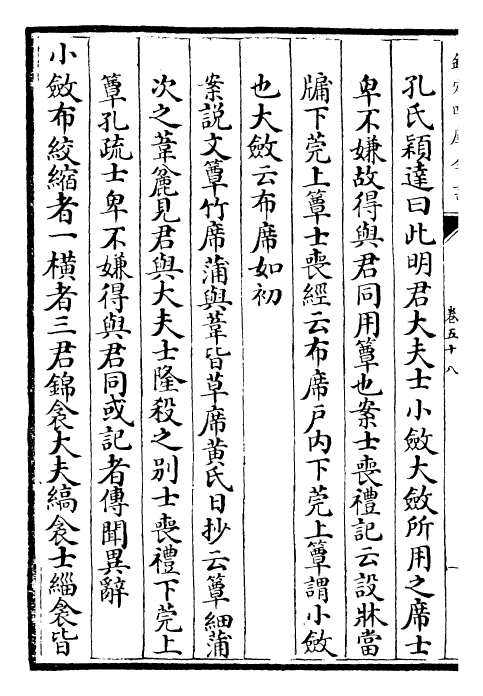 欽定四庫全書
卷五十八
孔氏穎達曰此明君大夫士小斂大斂所用之席士
卑不嫌故得與君同用簟也案士喪禮記云設牀當
牖下莞上簟士喪經云布席戶内下莞上簟謂小斂
也大斂云布席如初
案説文簟竹席蒲與葦皆草席黄氏日抄云簟細蒲
次之葦麄見君與大夫士隆殺之别士喪禮下莞上
簟孔疏士卑不嫌得與君同或記者傳聞異辭
小斂布絞縮者一横者三君錦衾大夫縞衾士緇衾皆